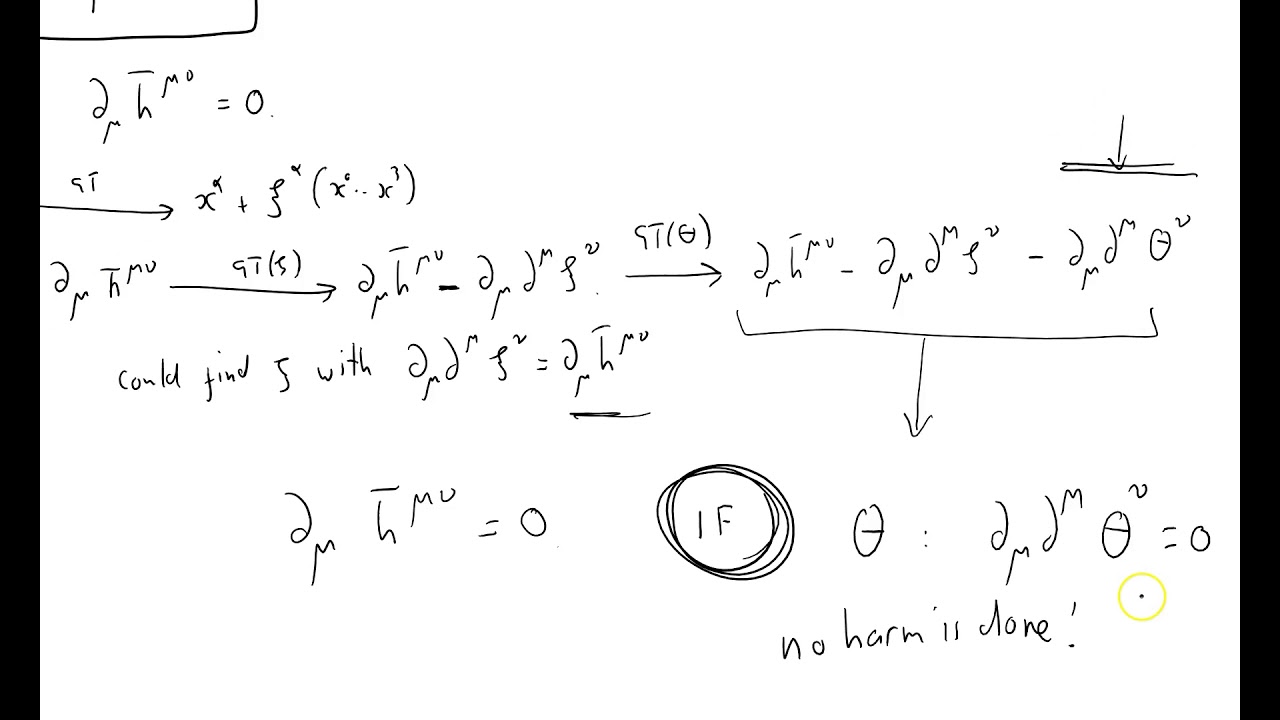 ∂_μ h̄^{μν} = 0.
GT → x^α + ξ^α (x^0 ·· x^3)
∂_μ h̄^{μν} GT(ξ) → ∂_μ h̄^{μν} - ∂_μ ∂^μ ξ^ν GT(θ) → ∂_μ h̄^{μν} - ∂_μ ∂^μ ξ^ν - ∂_μ ∂^μ θ^ν
could find ξ with ∂_μ ∂^μ ξ^ν = ∂_μ h̄^{μν}
∂_μ h̄^{μν} = 0
IF θ : ∂_μ ∂^μ θ^ν = 0
no harm is done!